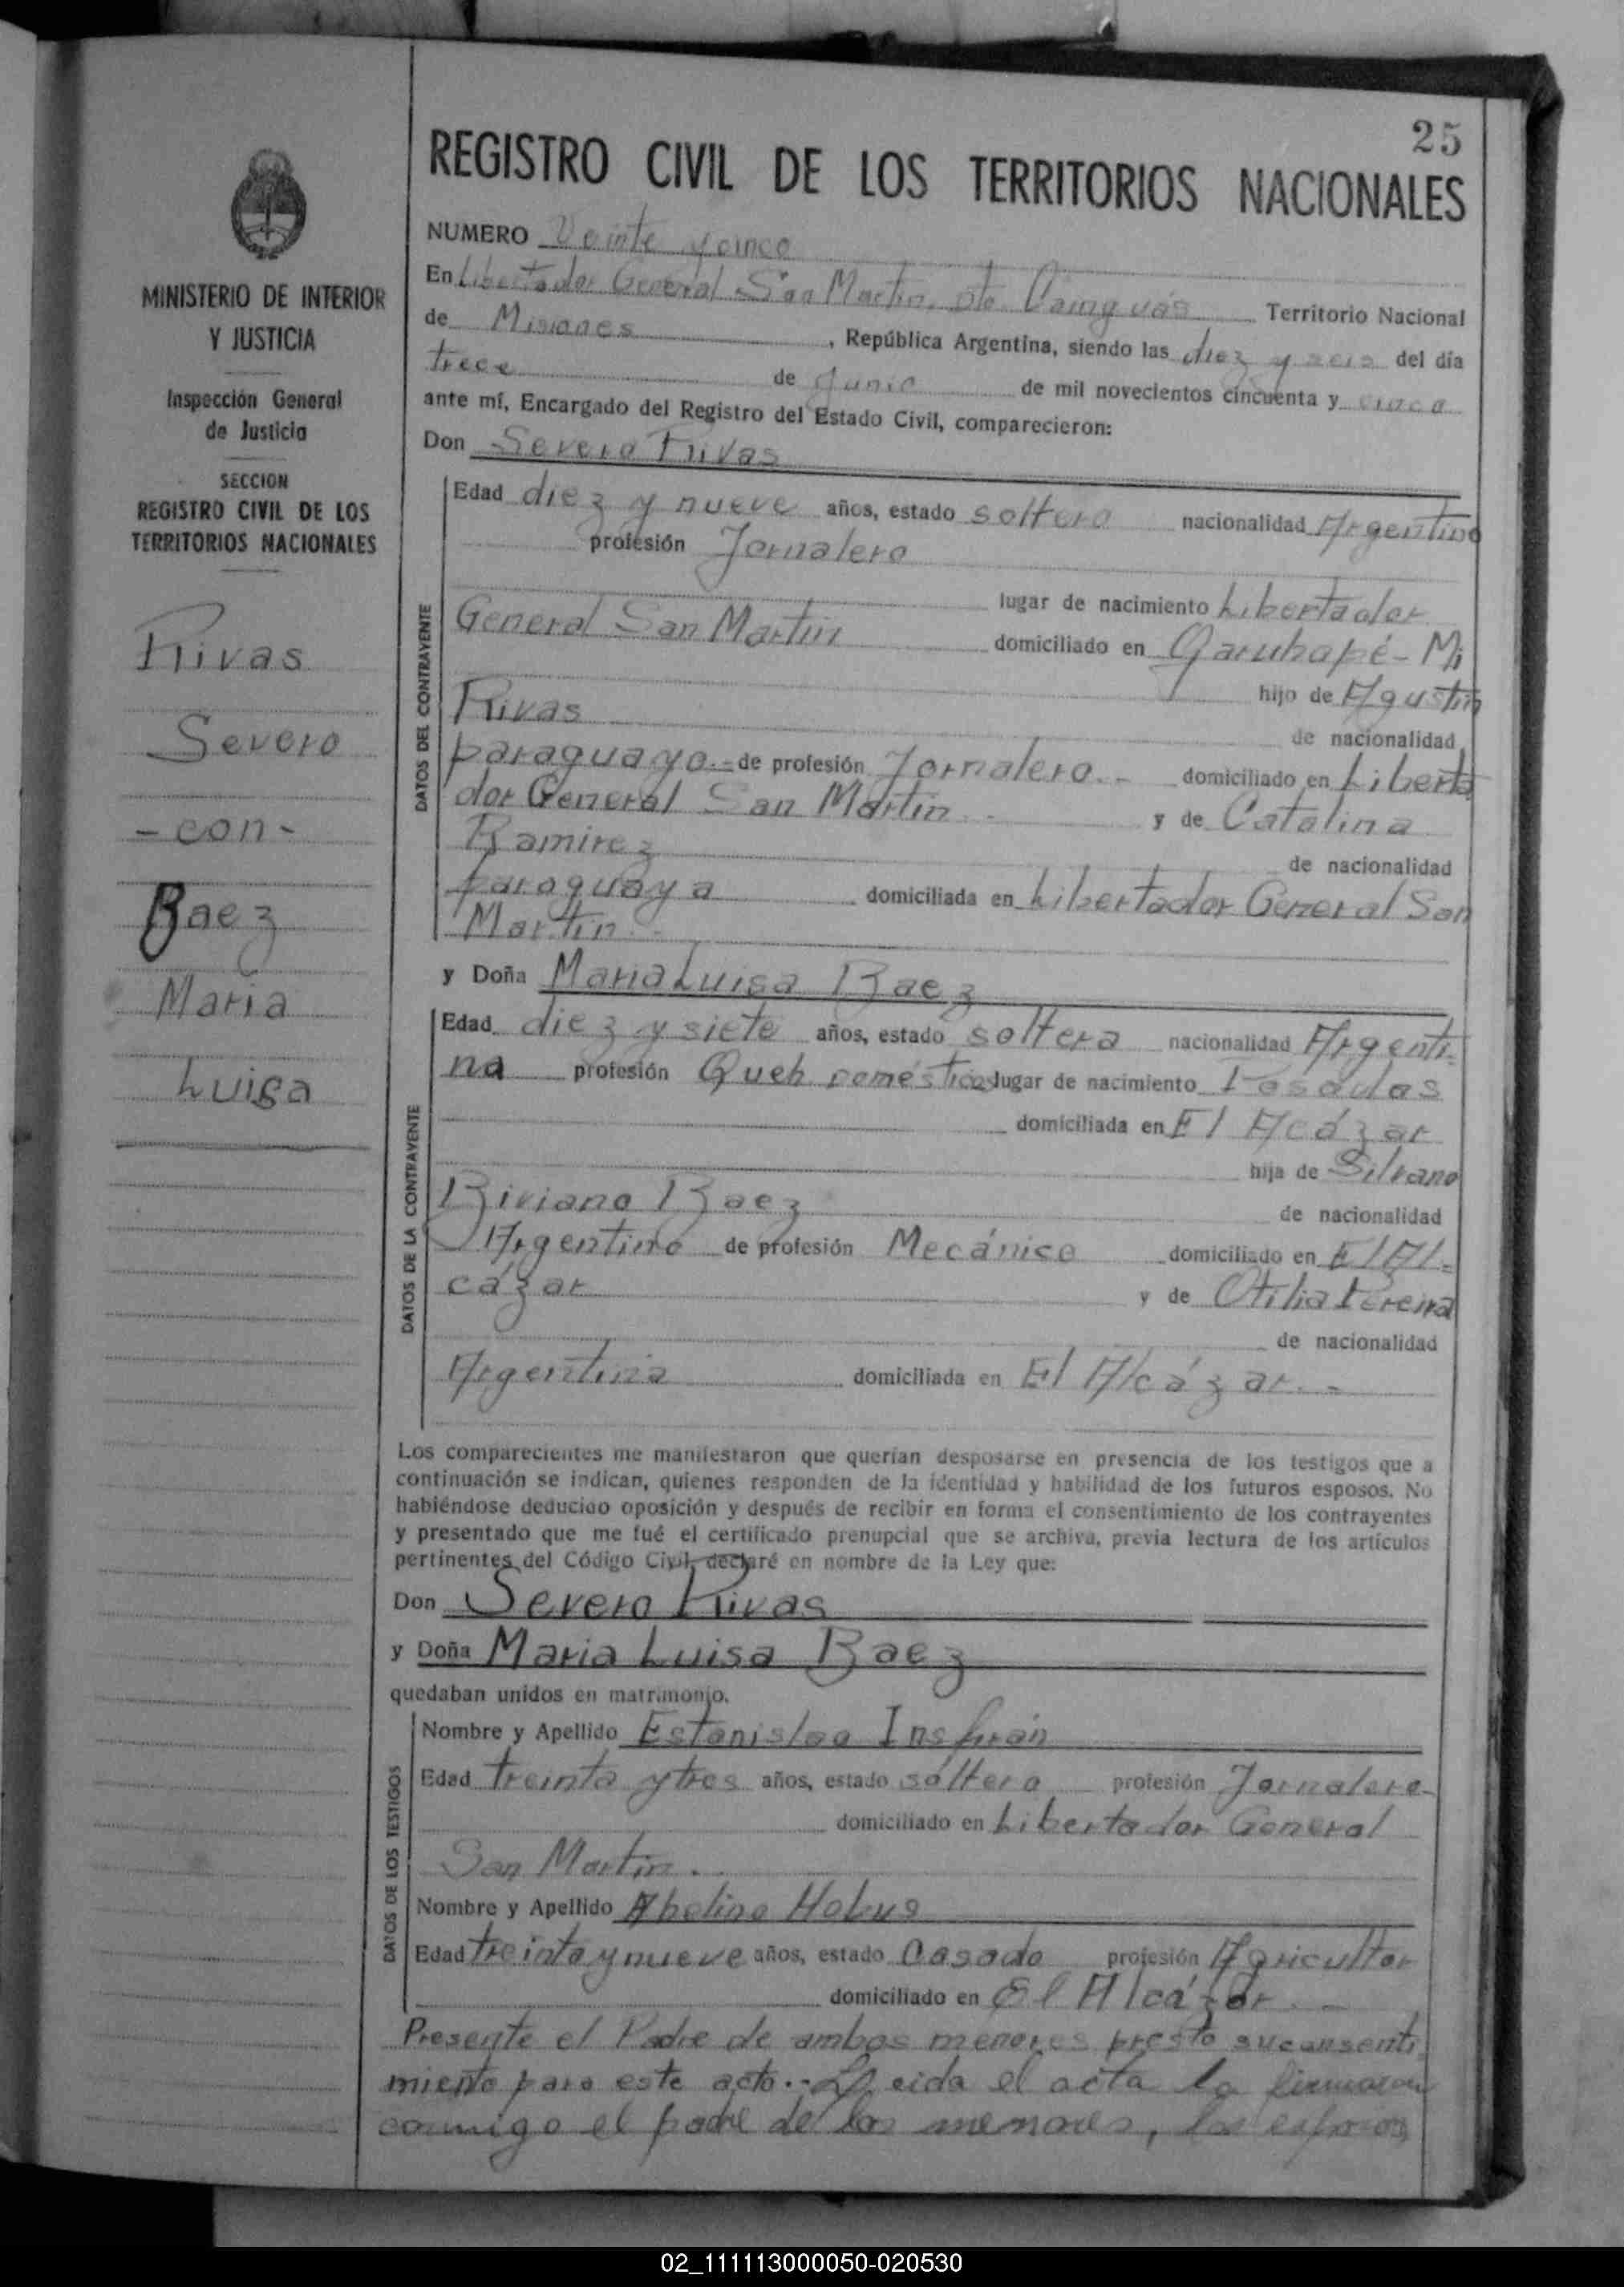 25
REGISTRO CIVIL DE LOS TERRITORIOS NACIONALES
MINISTERIO DE INTERIOR
Y JUSTICIA
Inspección General
de Justicia
SECCION
REGISTRO CIVIL DE LOS
TERRITORIOS NACIONALES
Rivas
Severo
- con -
Baez
Maria
Luisa
NUMERO Veinte y cinco
En Libertador General San Martin, dto. Cainguás Territorio Nacional
de Misiones, República Argentina, siendo las diez y seis del día
trece de Junio de mil novecientos cincuenta y cinco
ante mí, Encargado del Registro del Estado Civil, comparecieron:
Don Severo Rivas
DATOS DEL CONTRAYENTE
Edad diez y nueve años, estado soltero nacionalidad Argentino
profesión Jornalero
lugar de nacimiento Libertador
General San Martin domiciliado en Garuhapé - Mi
hijo de Agustin
Rivas de nacionalidad
paraguayo.- de profesión Jornalero.- domiciliado en Liberta
dor General San Martin.- y de Catalina
Ramirez de nacionalidad
paraguaya domiciliada en Libertador General San
Martin.-
y Doña Maria Luisa Baez
DATOS DE LA CONTRAYENTE
Edad diez y siete años, estado soltera nacionalidad Argenti-
na profesión Queh. doméstico lugar de nacimiento Posadas
domiciliada en El Acázar
hija de Silvano
Biviano Baez de nacionalidad
Argentino de profesión Mecánico domiciliado en El Al-
cázar y de Otilia Pereira
de nacionalidad
Argentina domiciliada en El Alcázar.-
Los comparecientes me manifestaron que querían desposarse en presencia de los testigos que a
continuación se indican, quienes responden de la identidad y habilidad de los futuros esposos. No
habiéndose deducido oposición y después de recibir en forma el consentimiento de los contrayentes
y presentado que me fué el certificado prenupcial que se archiva, previa lectura de los artículos
pertinentes del Código Civil, declaré en nombre de la Ley que:
Don Severo Rivas
y Doña Maria Luisa Baez
quedaban unidos en matrimonio.
DATOS DE LOS TESTIGOS
Nombre y Apellido Estanislao Insfrán
Edad treinta y tres años, estado soltero profesión Jornalero-
domiciliado en Libertador General
San Martin.
Nombre y Apellido Abelino Hobus
Edad treinta y nueve años, estado Casado profesión Agricultor
domiciliado en El Alcázar.-
Presente el Padre de ambos menores presto su consenti
miento para este acto.- Leida el acta la firmaron
conmigo el padre de los menores, los esposos
02_111113000050-020530